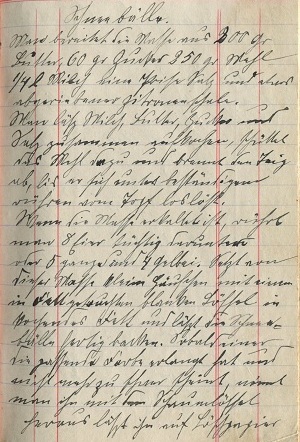 Schneebälle.
Man bereitet die Masse aus 200 gr
Butter, 60 gr Zucker 350 gr Mehl
1/4 L Milch eine Prise Salz und etwas
abgeriebener Zitronenschale.
Man läßt Milch, Butter, Zucker und
Salz zusammen aufkochen, schüttet
das Mehl dazu und brennt den Teig
ab, bis er sich unter beständigem
rühren vom Topf loslöst.
Wenn die Masse erkaltet ist, rührt
man 8 Eier tüchtig darunter
oder 6 ganze und 4 gelbei. Setzt von
dieser Masse kleine Häufchen mit einem
in Fett getauchten blanken Löffel in
kochendes Fett und läßt die Schnee-
bälle fertig backen. Sobald einer
die passende Farbe erlangt hat und
nicht mehr zu schwer scheint, nimmt
man ihn mit dem Schaumlöffel
heraus läßt ihn auf Löschpapier